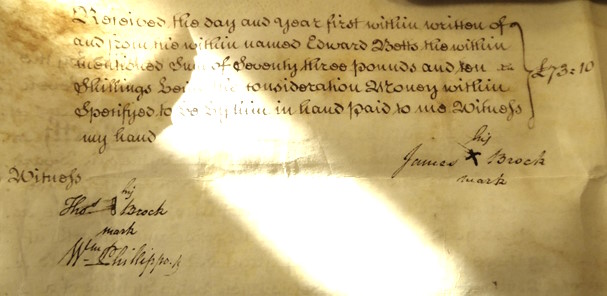 Received the day and year first within written of
and from the within named Edward Betts the within
mentioned Sum of Seventy three pounds and ten
Shillings being the consideration Money within
Specifyed to be by him in hand paid to me Witness
my hand
£73=10
his
James X Brock
mark
Witness
his
Thos Brock
mark
Wm Phillippo